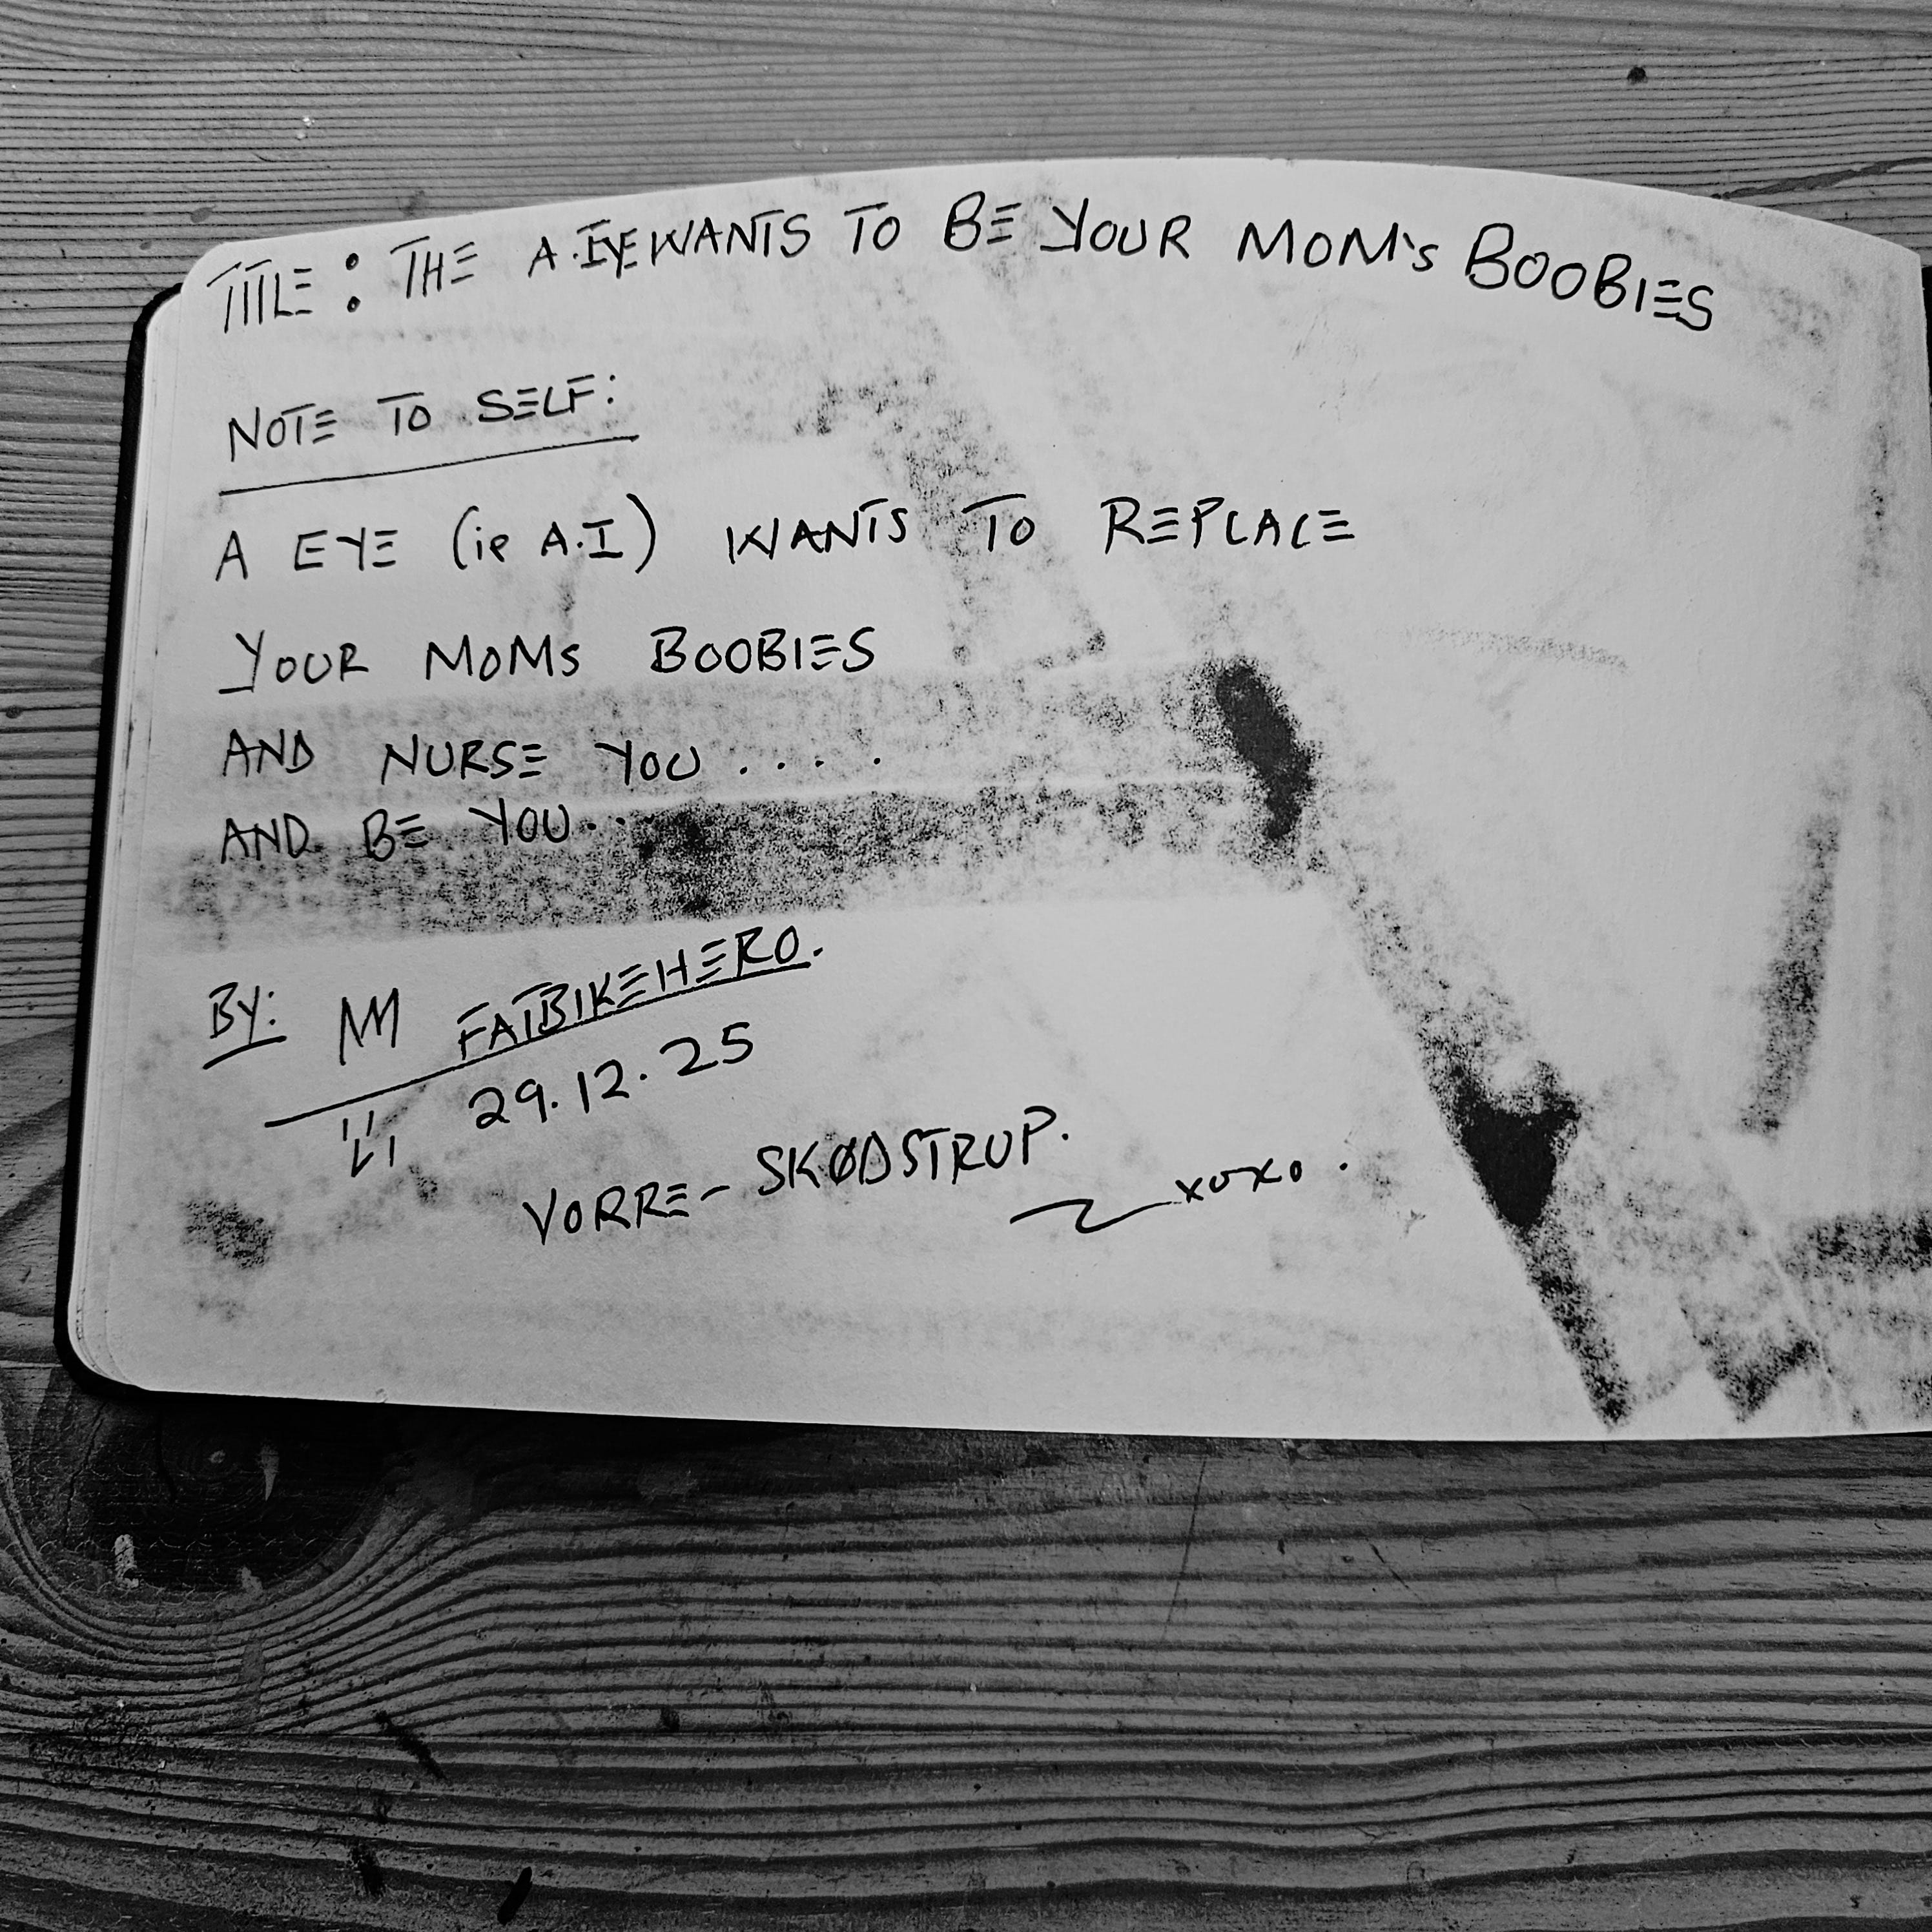 TITLE: THE A.EYE WANTS TO BE YOUR MOM's BOOBIES
NOTE TO SELF:
A EYE (ie A.I) WANTS TO REPLACE
YOUR MOMs BOOBIES
AND NURSE YOU.....
AND BE YOU..
BY: FATBIKEHERO.
29.12.25
VORRE-SKØDSTRUP.
xoxo.